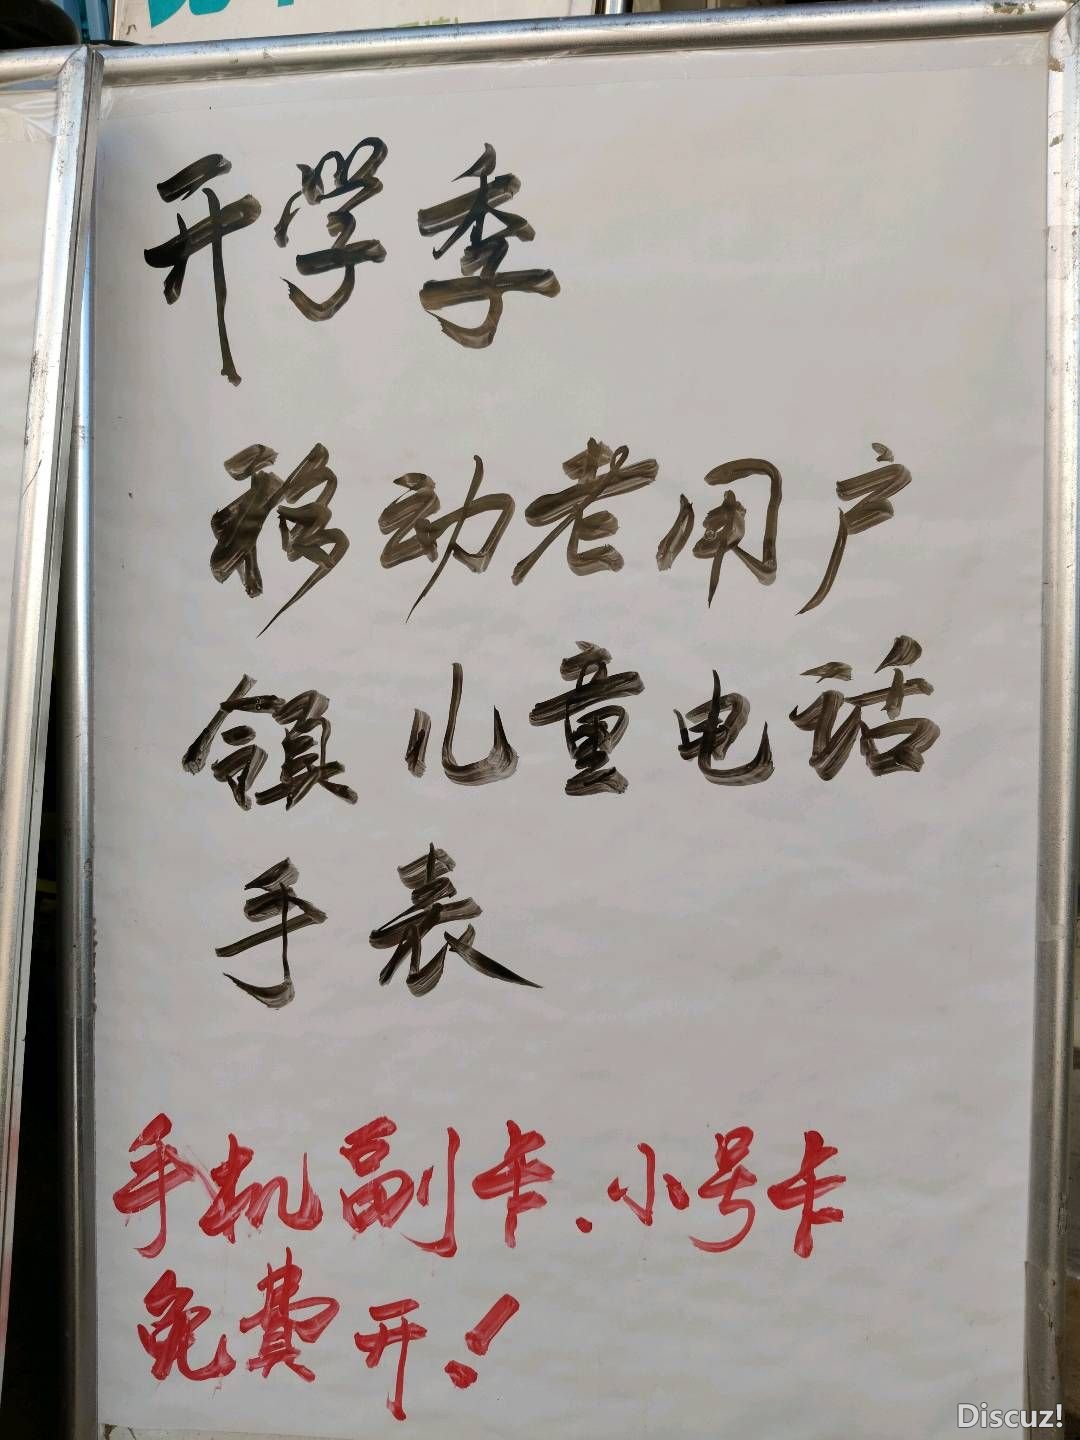 开学季
移动老用户
领儿童电话
手表
手机副卡.小号卡
免费开!
Discuz!